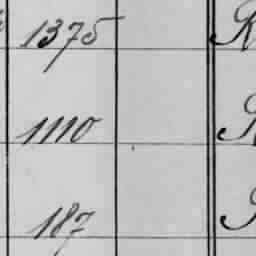 1375
1110
187